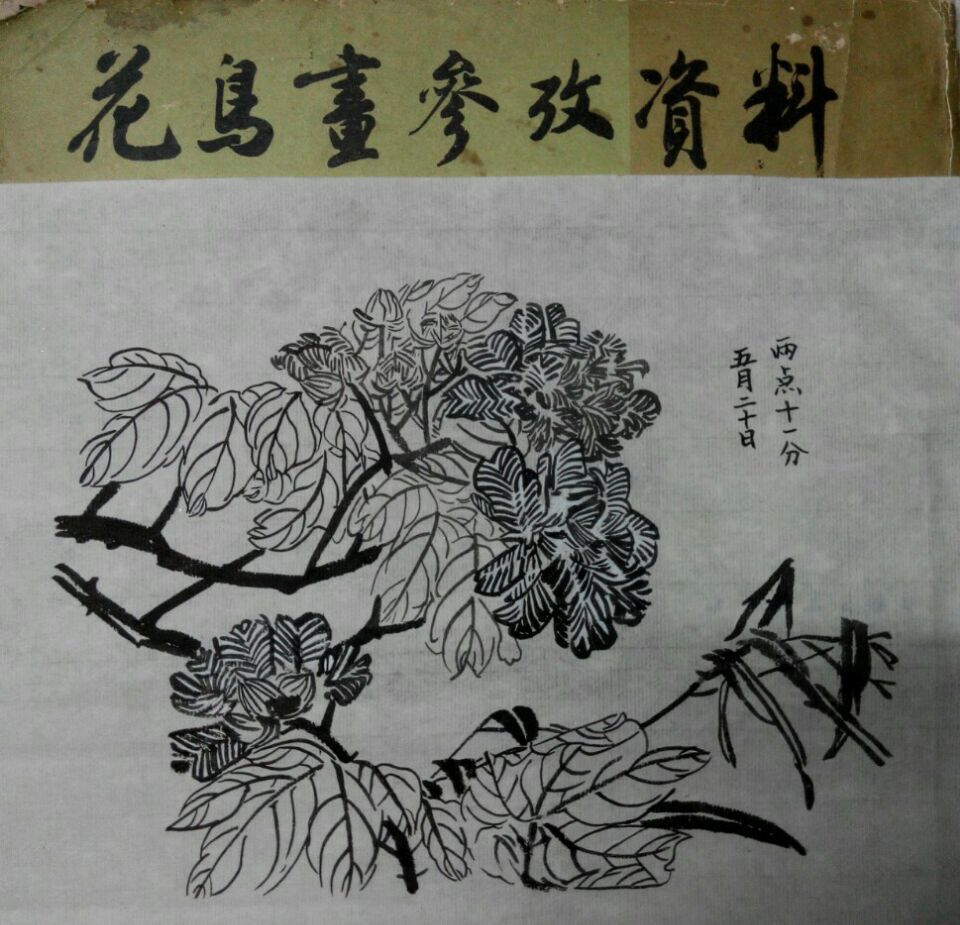 花鳥畫參攷資料
两点十一分
五月二十日